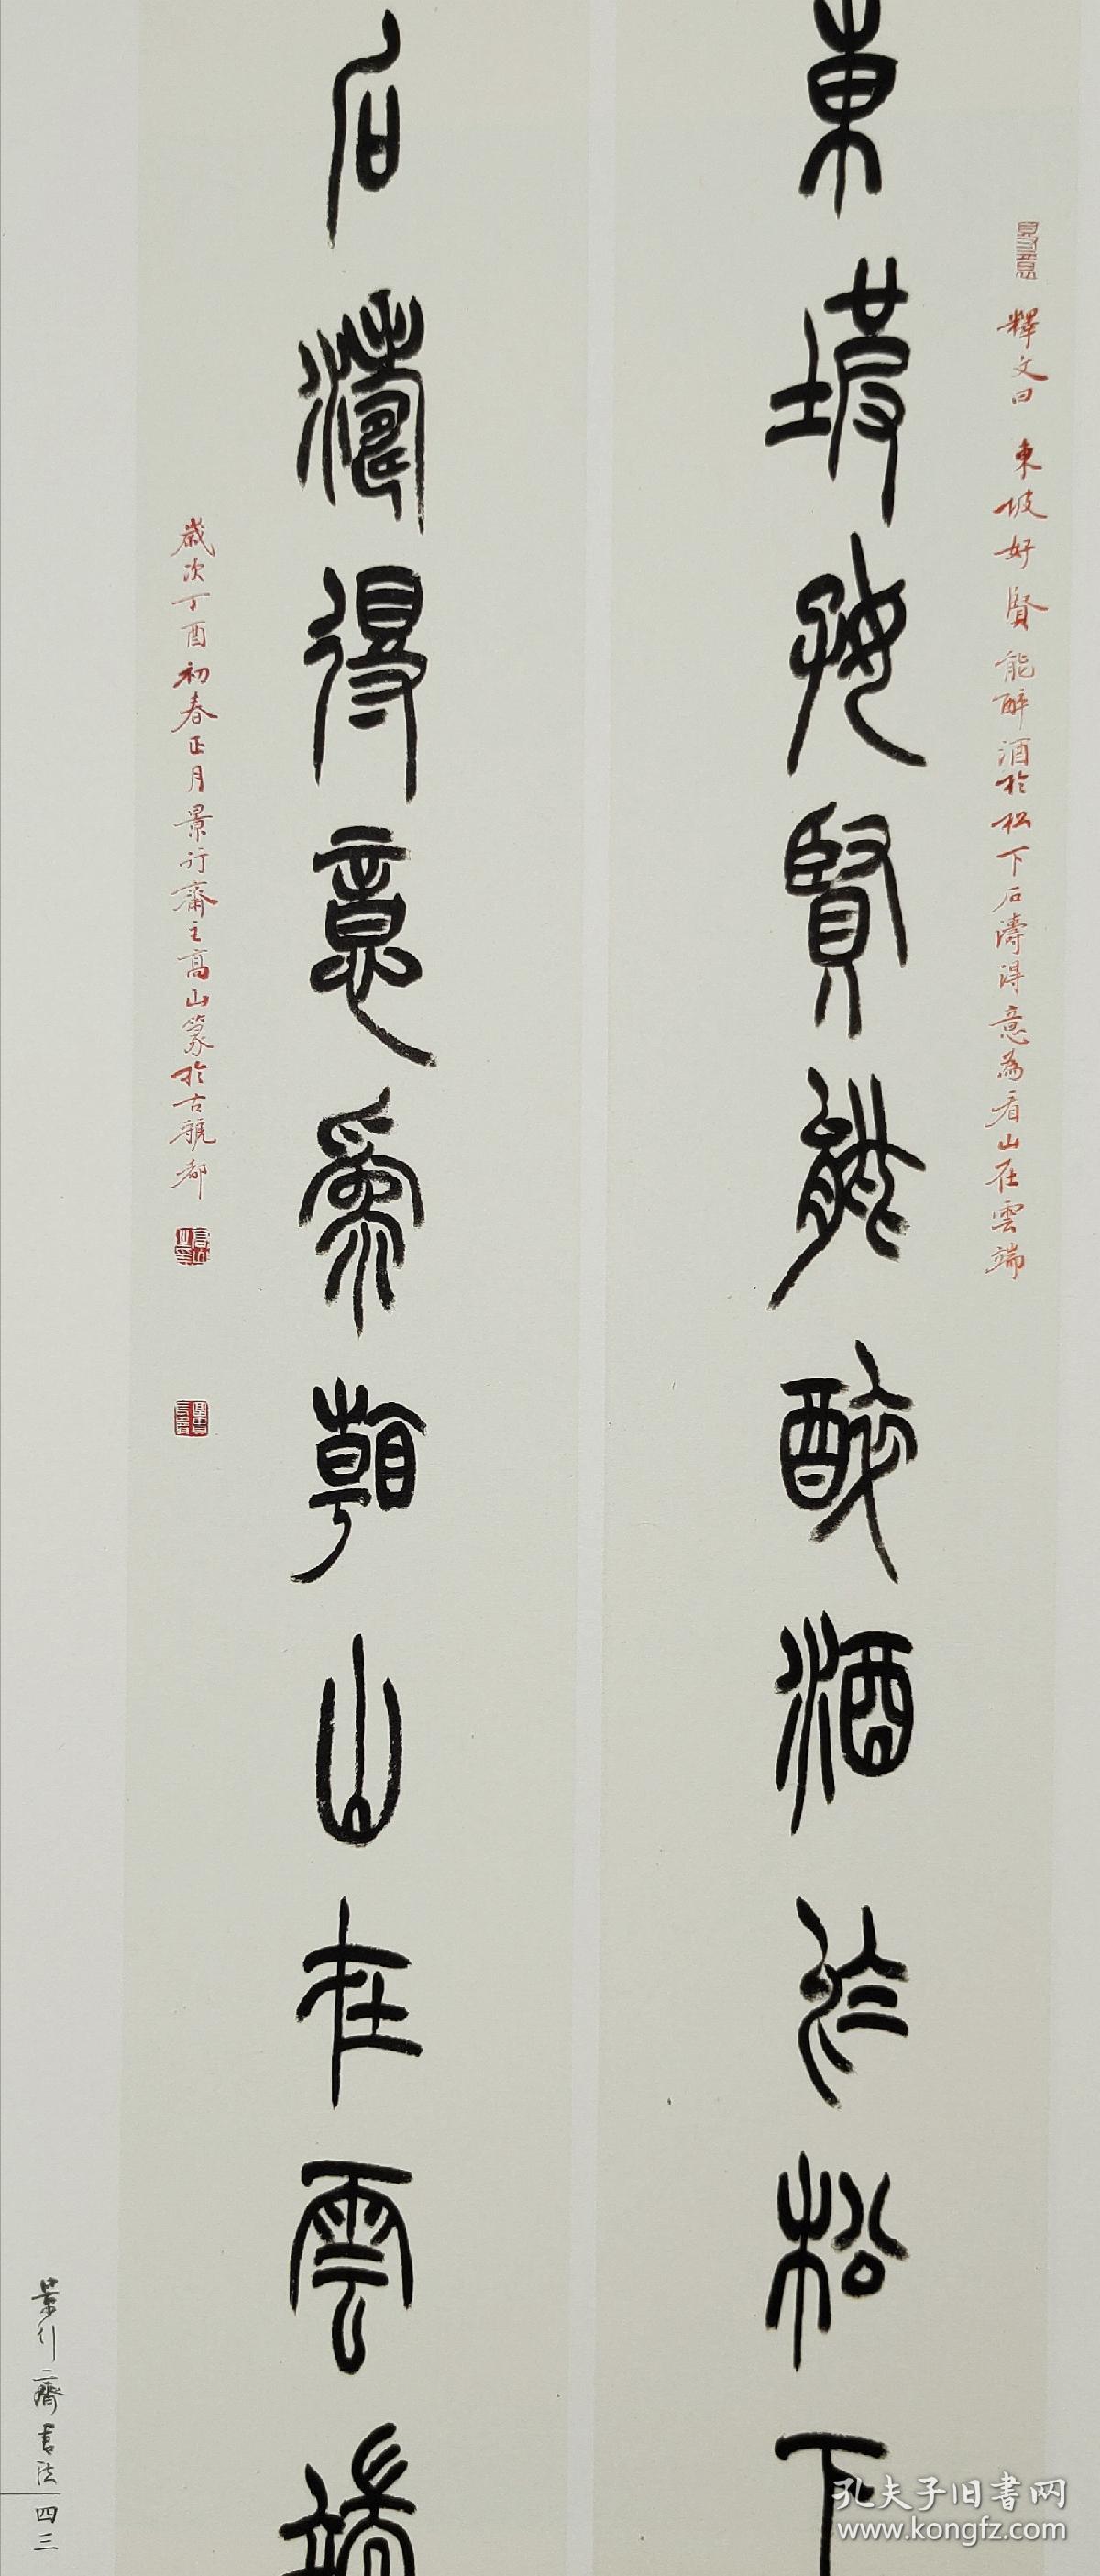 東坡好賢能醉酒於松下
釋文曰 東坡好賢能醉酒於松下石濤得意為看山在雲端
石濤得意為看山在雲端
歲次丁酉初春正月景行齋主高山篆於古虢都
景行齋書法
四三
孔夫子旧书网
www.kongfz.com